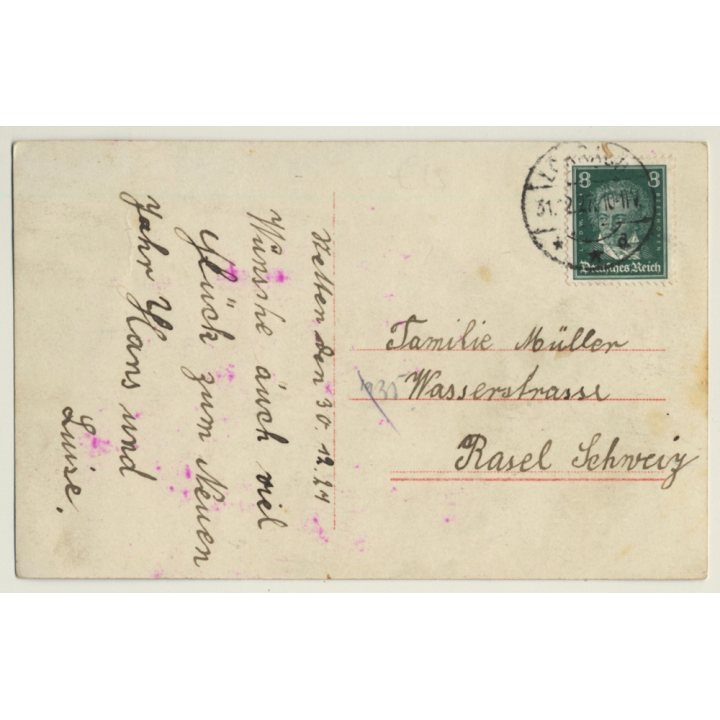 Stetten den 30.12.27
Wünsche auch viel
Glück zum Neuen
Jahr Hans und
Luise.
8 8
Deutsches Reich
Familie Müller
Wasserstrasse
Basel Schweiz